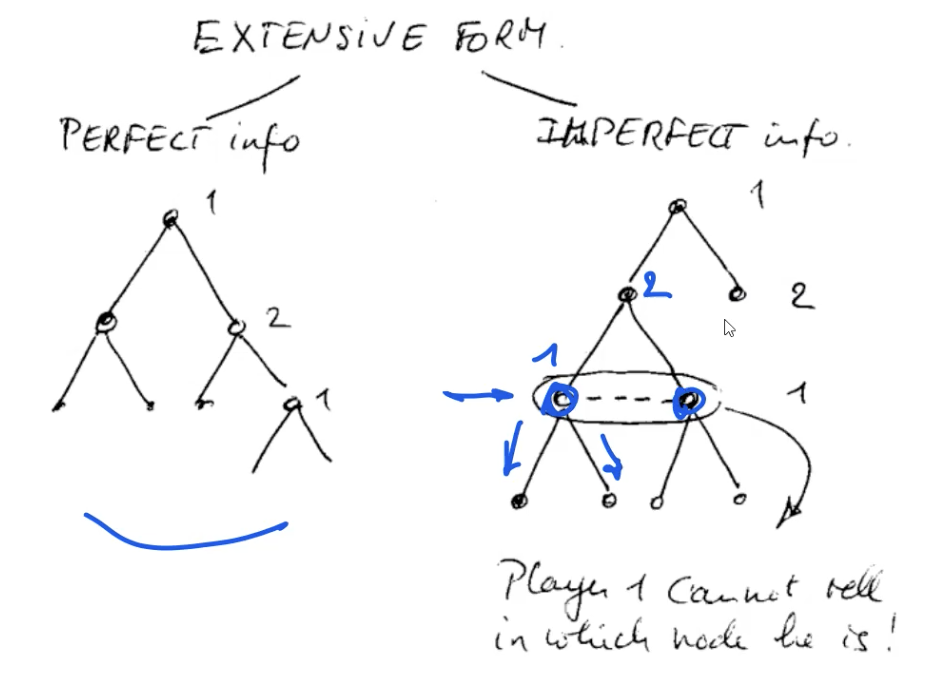 EXTENSIVE FORM.
PERFECT info
IMPERFECT info.
1
2
1
1
2
2
1
1
Player 1 cannot tell
in which node he is!